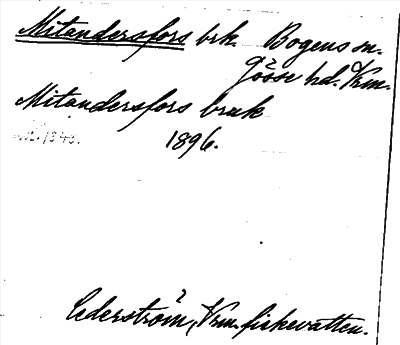 Mitandersfors brk. Bogens sn.
Jösse hd. Vrm.
Mitandersfors bruk
1896.
Cederström, Vrm. fiskevatten.